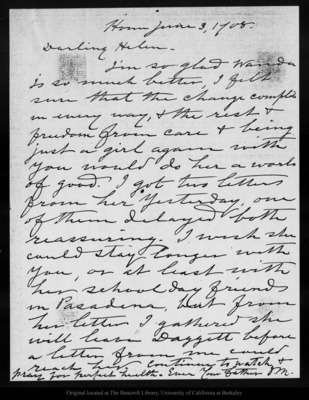 Home June 3, 1908.
Darling Helen.
I'm so glad Wanda
is so much better, I felt
sure that the change complete
in every way, & the rest &
freedom from care & being
just a girl again with
you would do her a world
of good. I got two letters
from her yesterday, one
of them delayed both
reassuring. I wish she
could stay longer with
you, or at least with
her schoolday friends
in Pasadena, but from
her letter I gathered she
will leave Daggett before
a letter from me could
reach her. Continue to watch &
pray for perfect health. Ever Your Father J.M.
Original located at The Bancroft Library, University of California at Berkeley